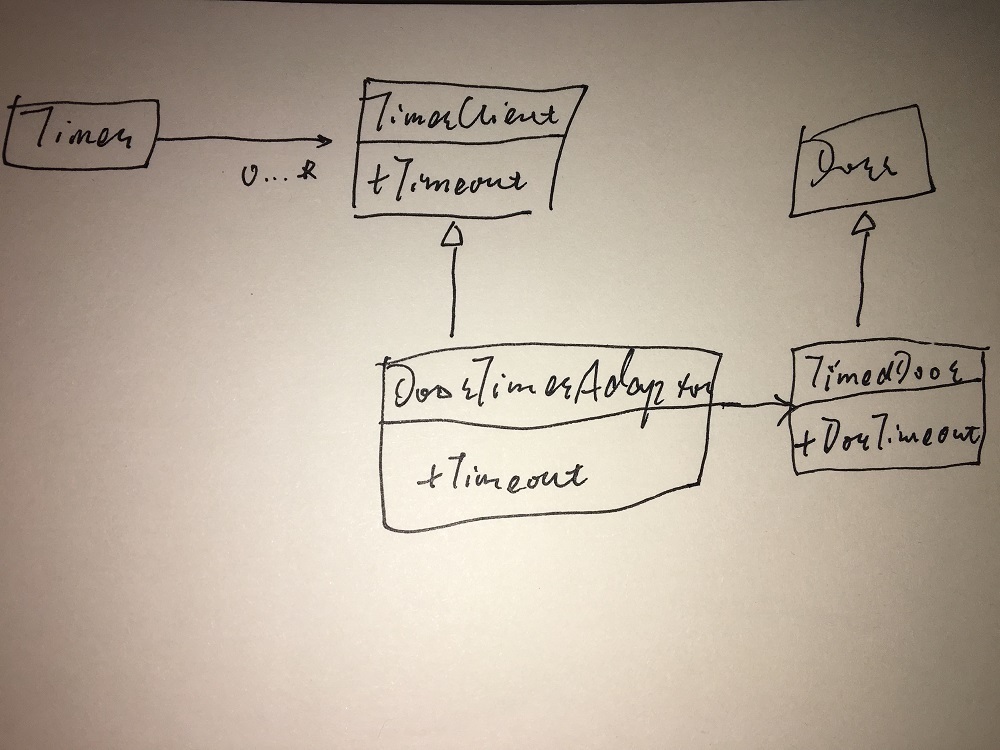 Timer
0...*
TimerClient
+Timeout
Door
DoorTimerAdaptor
+Timeout
TimedDoor
+DorTimeout